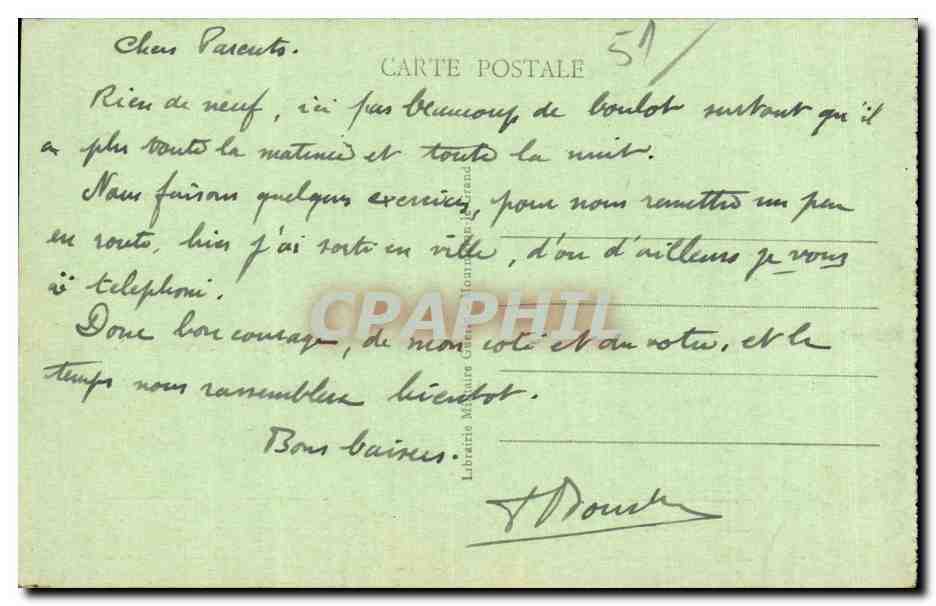 Chers Parents.
51
CARTE POSTALE
Rien de neuf, ici pas beaucoup de boulot surtout qu'il
a plu toute la matinée et toute la nuit.
Nous faisons quelques exercices, pour nous remettre un peu
en route, hier j'ai sorti en ville, d'ou d'ailleurs je vous
ai telephoné.
Donc bon courage, de mon coté et du votre, et le
temps nous rassemblera bientot.
Bons baisers.
Librairie Militaire Guérin, Mourmelon-le-Grand
CPAPHIL